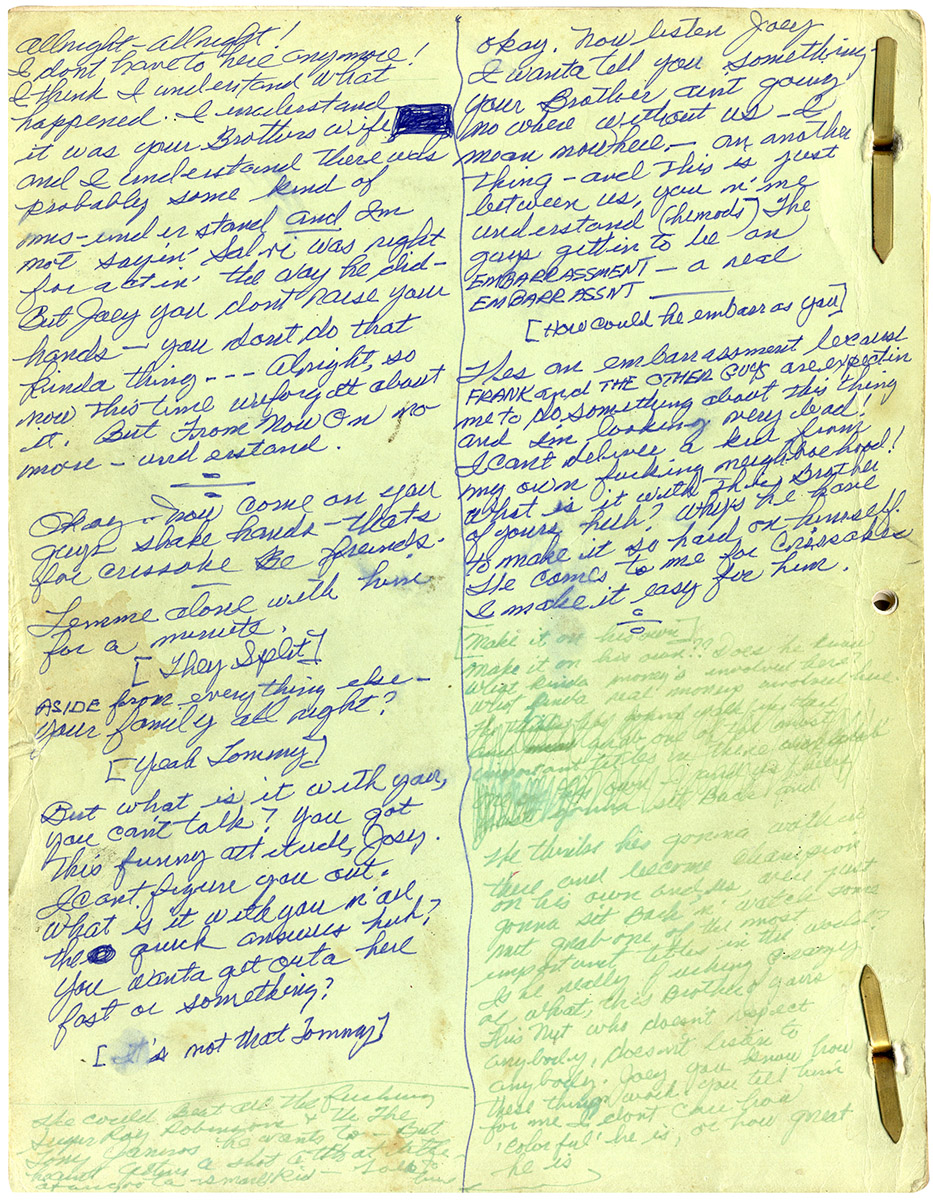 allright - allright!
I dont have to here anymore!
I think I understand what
happened. I understand
it was your Brothers wife
and I understand there was
probably some kind of
mis-understand and Im
not sayin' Salvi was right
for actin' the way he did -
But Joey you dont raise your
hands - you dont do that
kinda thing --- Alright, so
now this time we forgett about
it. But From Now On no
more - understand.
Okay - Now come on you
guys shake hands - thats
for crissake Be freinds.
Lemme alone with him
for a minute.
[They Split]
ASIDE from everything else -
your family all right?
[Yeah Tommy]
But what is it with you,
you can't talk? You got
this funny attitude, Joey.
I cant figure you out.
What is it with you n' all
the quick answers huh?
You wanta get outa here
fast or something?
[It's not that Tommy]
He could Beat all the fucking
Sugar Ray Robinsons & the
Tony Janiros he wants to - But
he aint getting a shot at that title
okay. Now listen Joey
I wanta tell you something -
your Brother ain't going
no where without us - I
mean nowhere, - an another
thing - and this is just
between us, you n' me
understand (he nods) The
guys gettin to be an
EMBARRASSMENT - a real
EMBARRASSNT
[How could he embarras you]
Hes an embarrassment because
FRANK and THE OTHER GUYS are expectin
me to do something about this thing
and Im looking very bad!
I cant deliver a kid from
my own fucking neighborhood!
What is it with this Brother
of yours, huh? Why's he have
to make it so hard on himself.
He comes to me for Crissakes
I make it easy for him.
[Make it on his own]
Make it on his own?? Does he know
what kinda money's involved here,
what kinda real money involved here
He thinks hes gonna walk in
there and become champion
on his own and us were just
gonna sit Back n' watch some
nut grab one of the most
important titles in the world?
Is he really fucking crazy
or what, this Brother of yours
This Nut who doesn't respect
anybody, doesn't listen to
anybody. Joey you know how
these things work. You tell him
for me I dont care how
'colorful' he is, or how great
he is